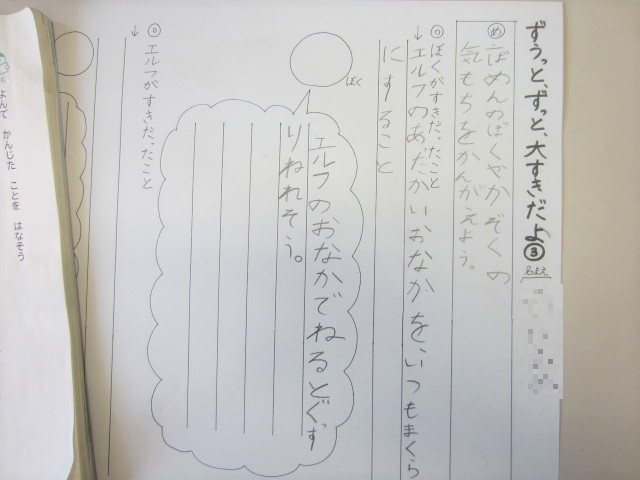 ずうっと、ずっと、大すきだよ③
名まえ
め ばめんのぼくやかぞくの
気もちをかんがえよう。
◎ぼくがすきだったこと
↓エルフのあったかいおなかを、いつもまくら
にすること
ぼく
エルフのおなかでねるとぐっす
りねれそう。
◎エルフがすきだったこと
↓
よんで かんじた ことを はなそう